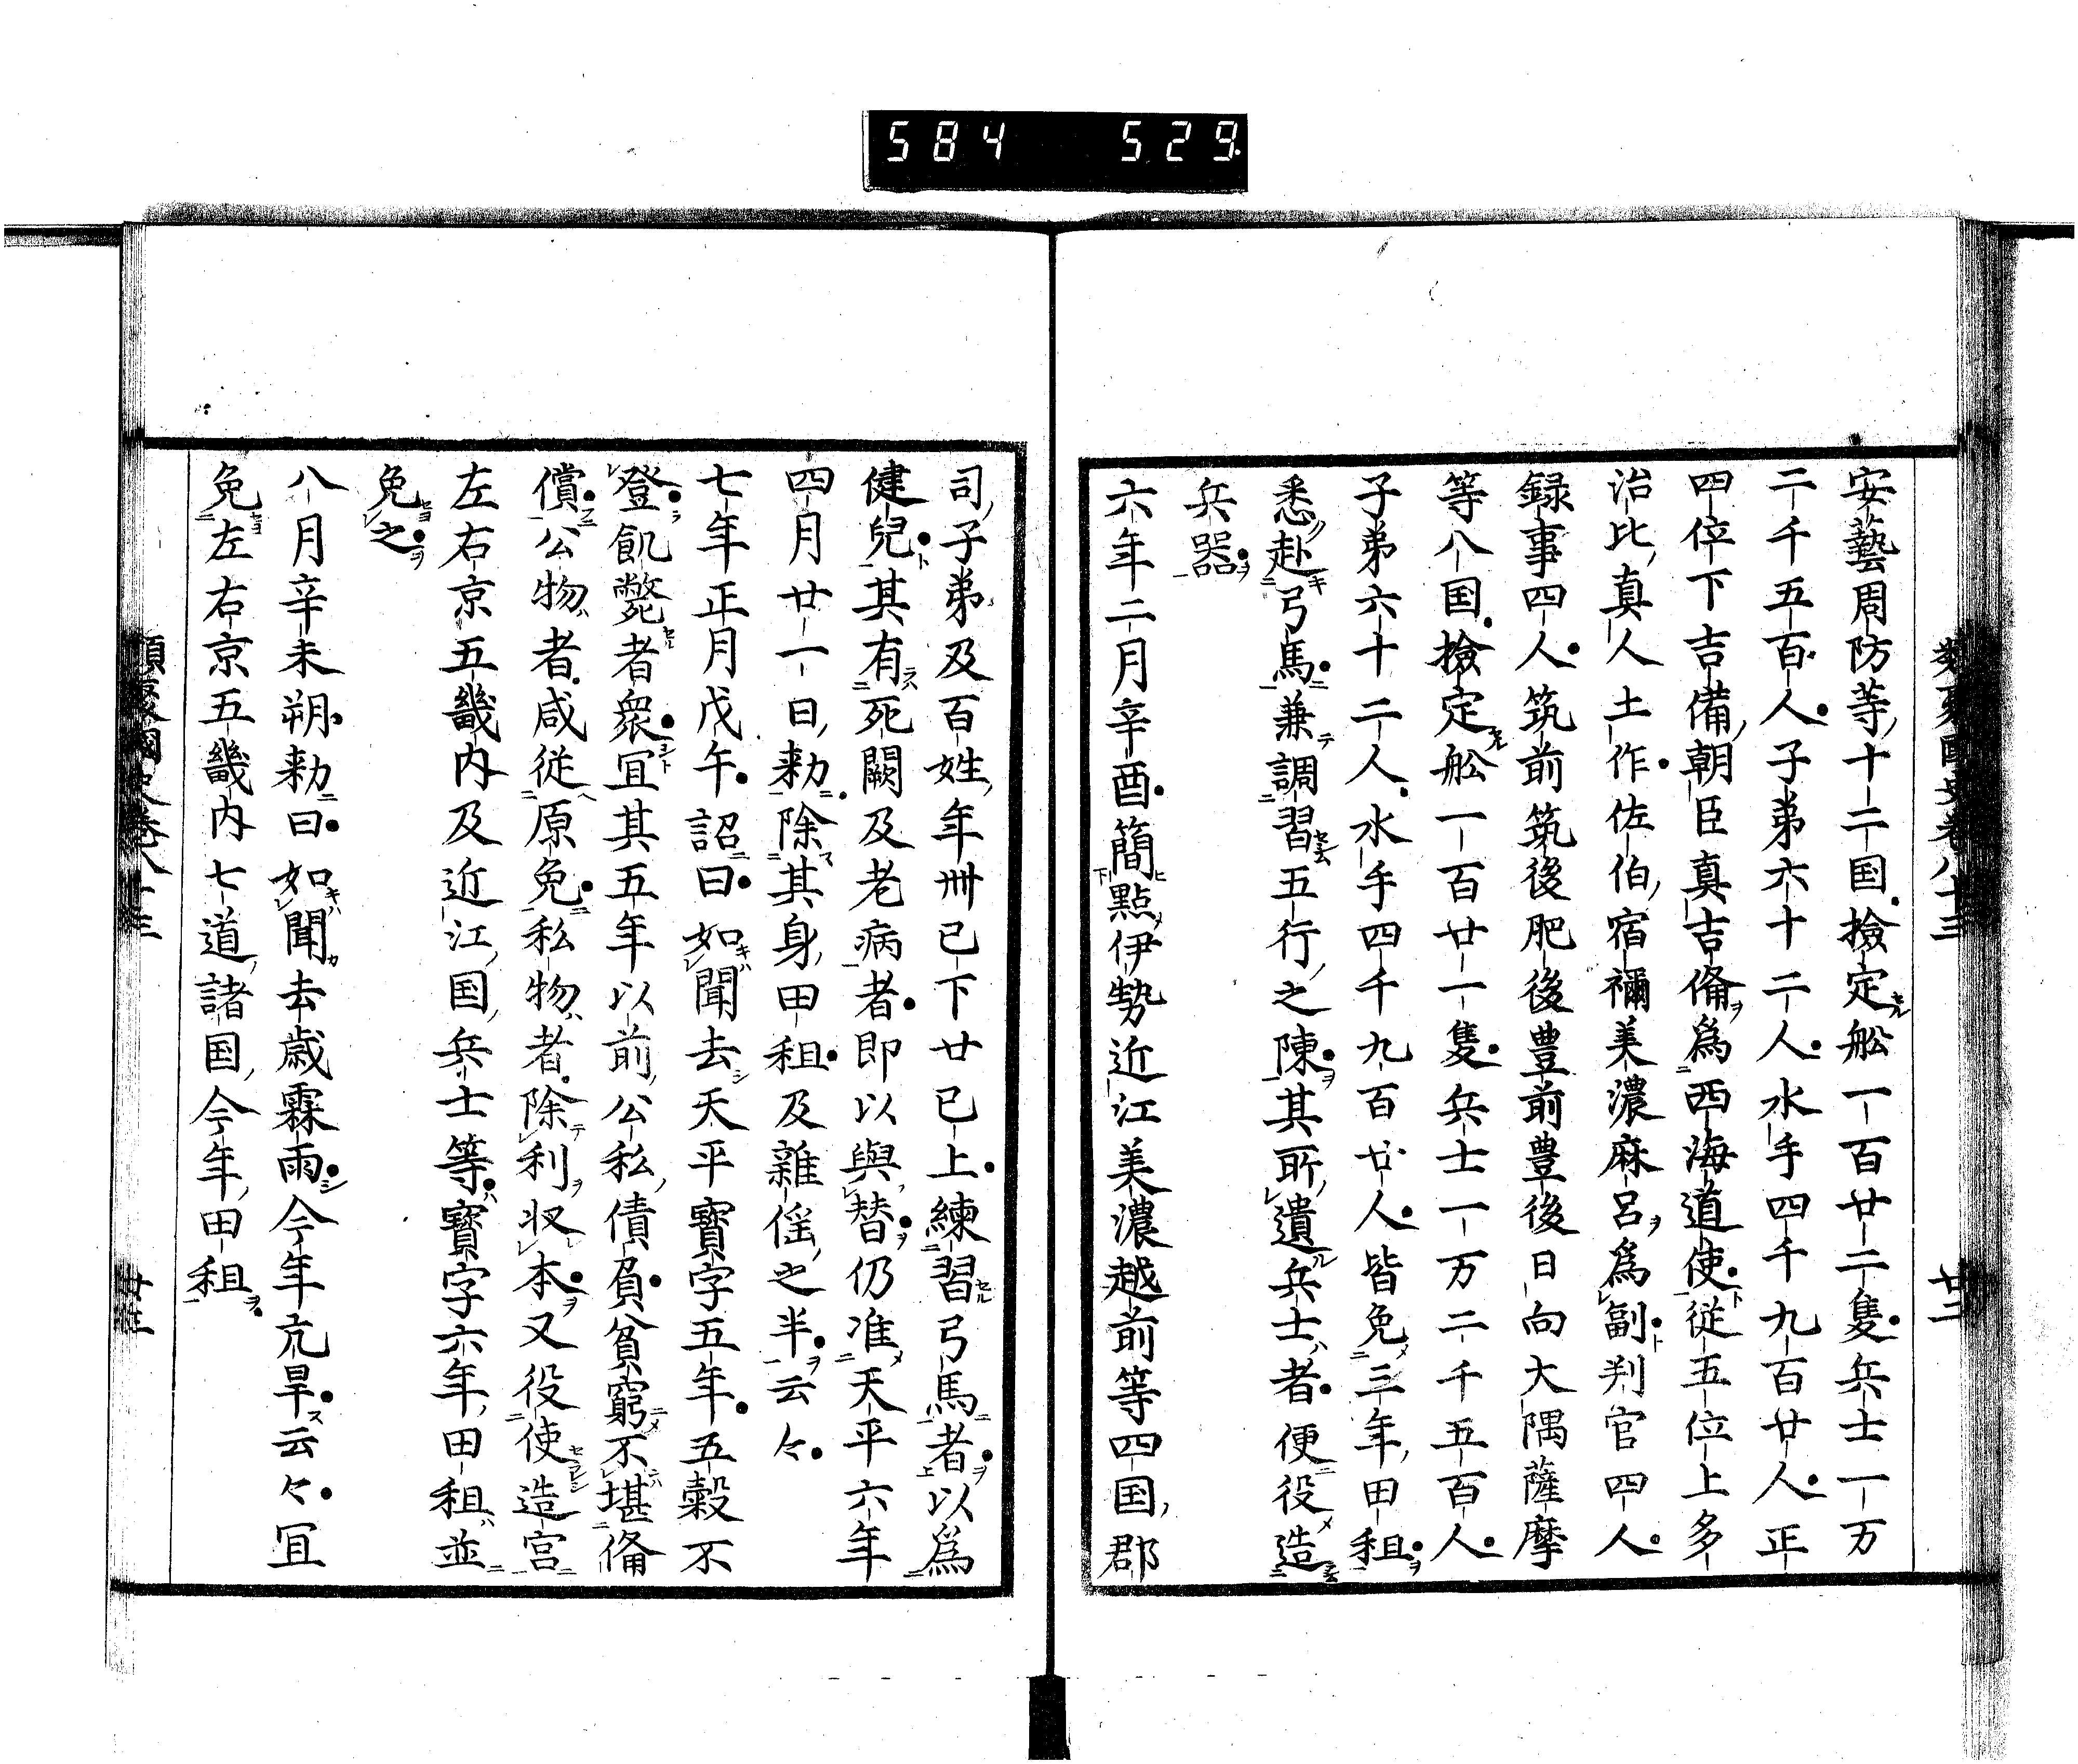 584 529
安藝周防等十二国撿定舩一百廿二隻兵士一万
二千五百人子弟六十二人水手四千九百廿人正
四位下吉備朝臣真吉俻爲西海道使従五位上多
治比真人土作佐伯宿禰美濃麻呂爲副判官四人
録事四人筑前筑後肥後豊前豊後日向大隅薩摩
等八国撿定舩一百廿一隻兵士一万二千五百人
子弟六十二人水手四千九百廿人皆免三年田租
悉赴弓馬兼調習五行之陳其所遺兵士者便役造
兵器
六年二月辛酉簡點伊勢近江美濃越前等四国郡
司子弟及百姓年卌已下廿已上練習弓馬者以爲
健兒其有死闕及老病者即以與替仍准天平六年
四月廿一日勅除其身田租及雜徭之半云々
七年正月戊午詔曰如聞去天平寳字五年五糓不
登飢斃者衆冝其五年以前公私債負貧窮不堪俻
償公物者咸従原免私物者除利収本又役使造宮
左右京五畿内及近江国兵士等寳字六年田租並
免之
八月辛未朔勅曰如聞去歳霖雨今年亢旱云々冝
免左右京五畿内七道諸国今年田租